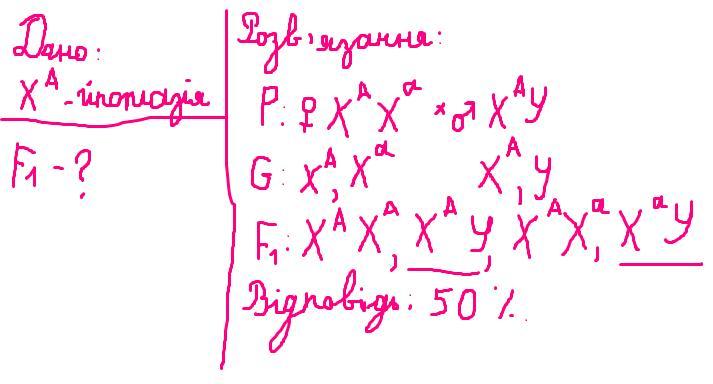 Дано:
X^A - гіпоплазія
F₁ - ?
Розв'язання:
P: ♀ X^A X^a × ♂ X^A Y
G: X^A, X^a X^A, Y
F₁: X^A X^A, X^A Y, X^A X^a, X^a Y
Відповідь: 50 %.